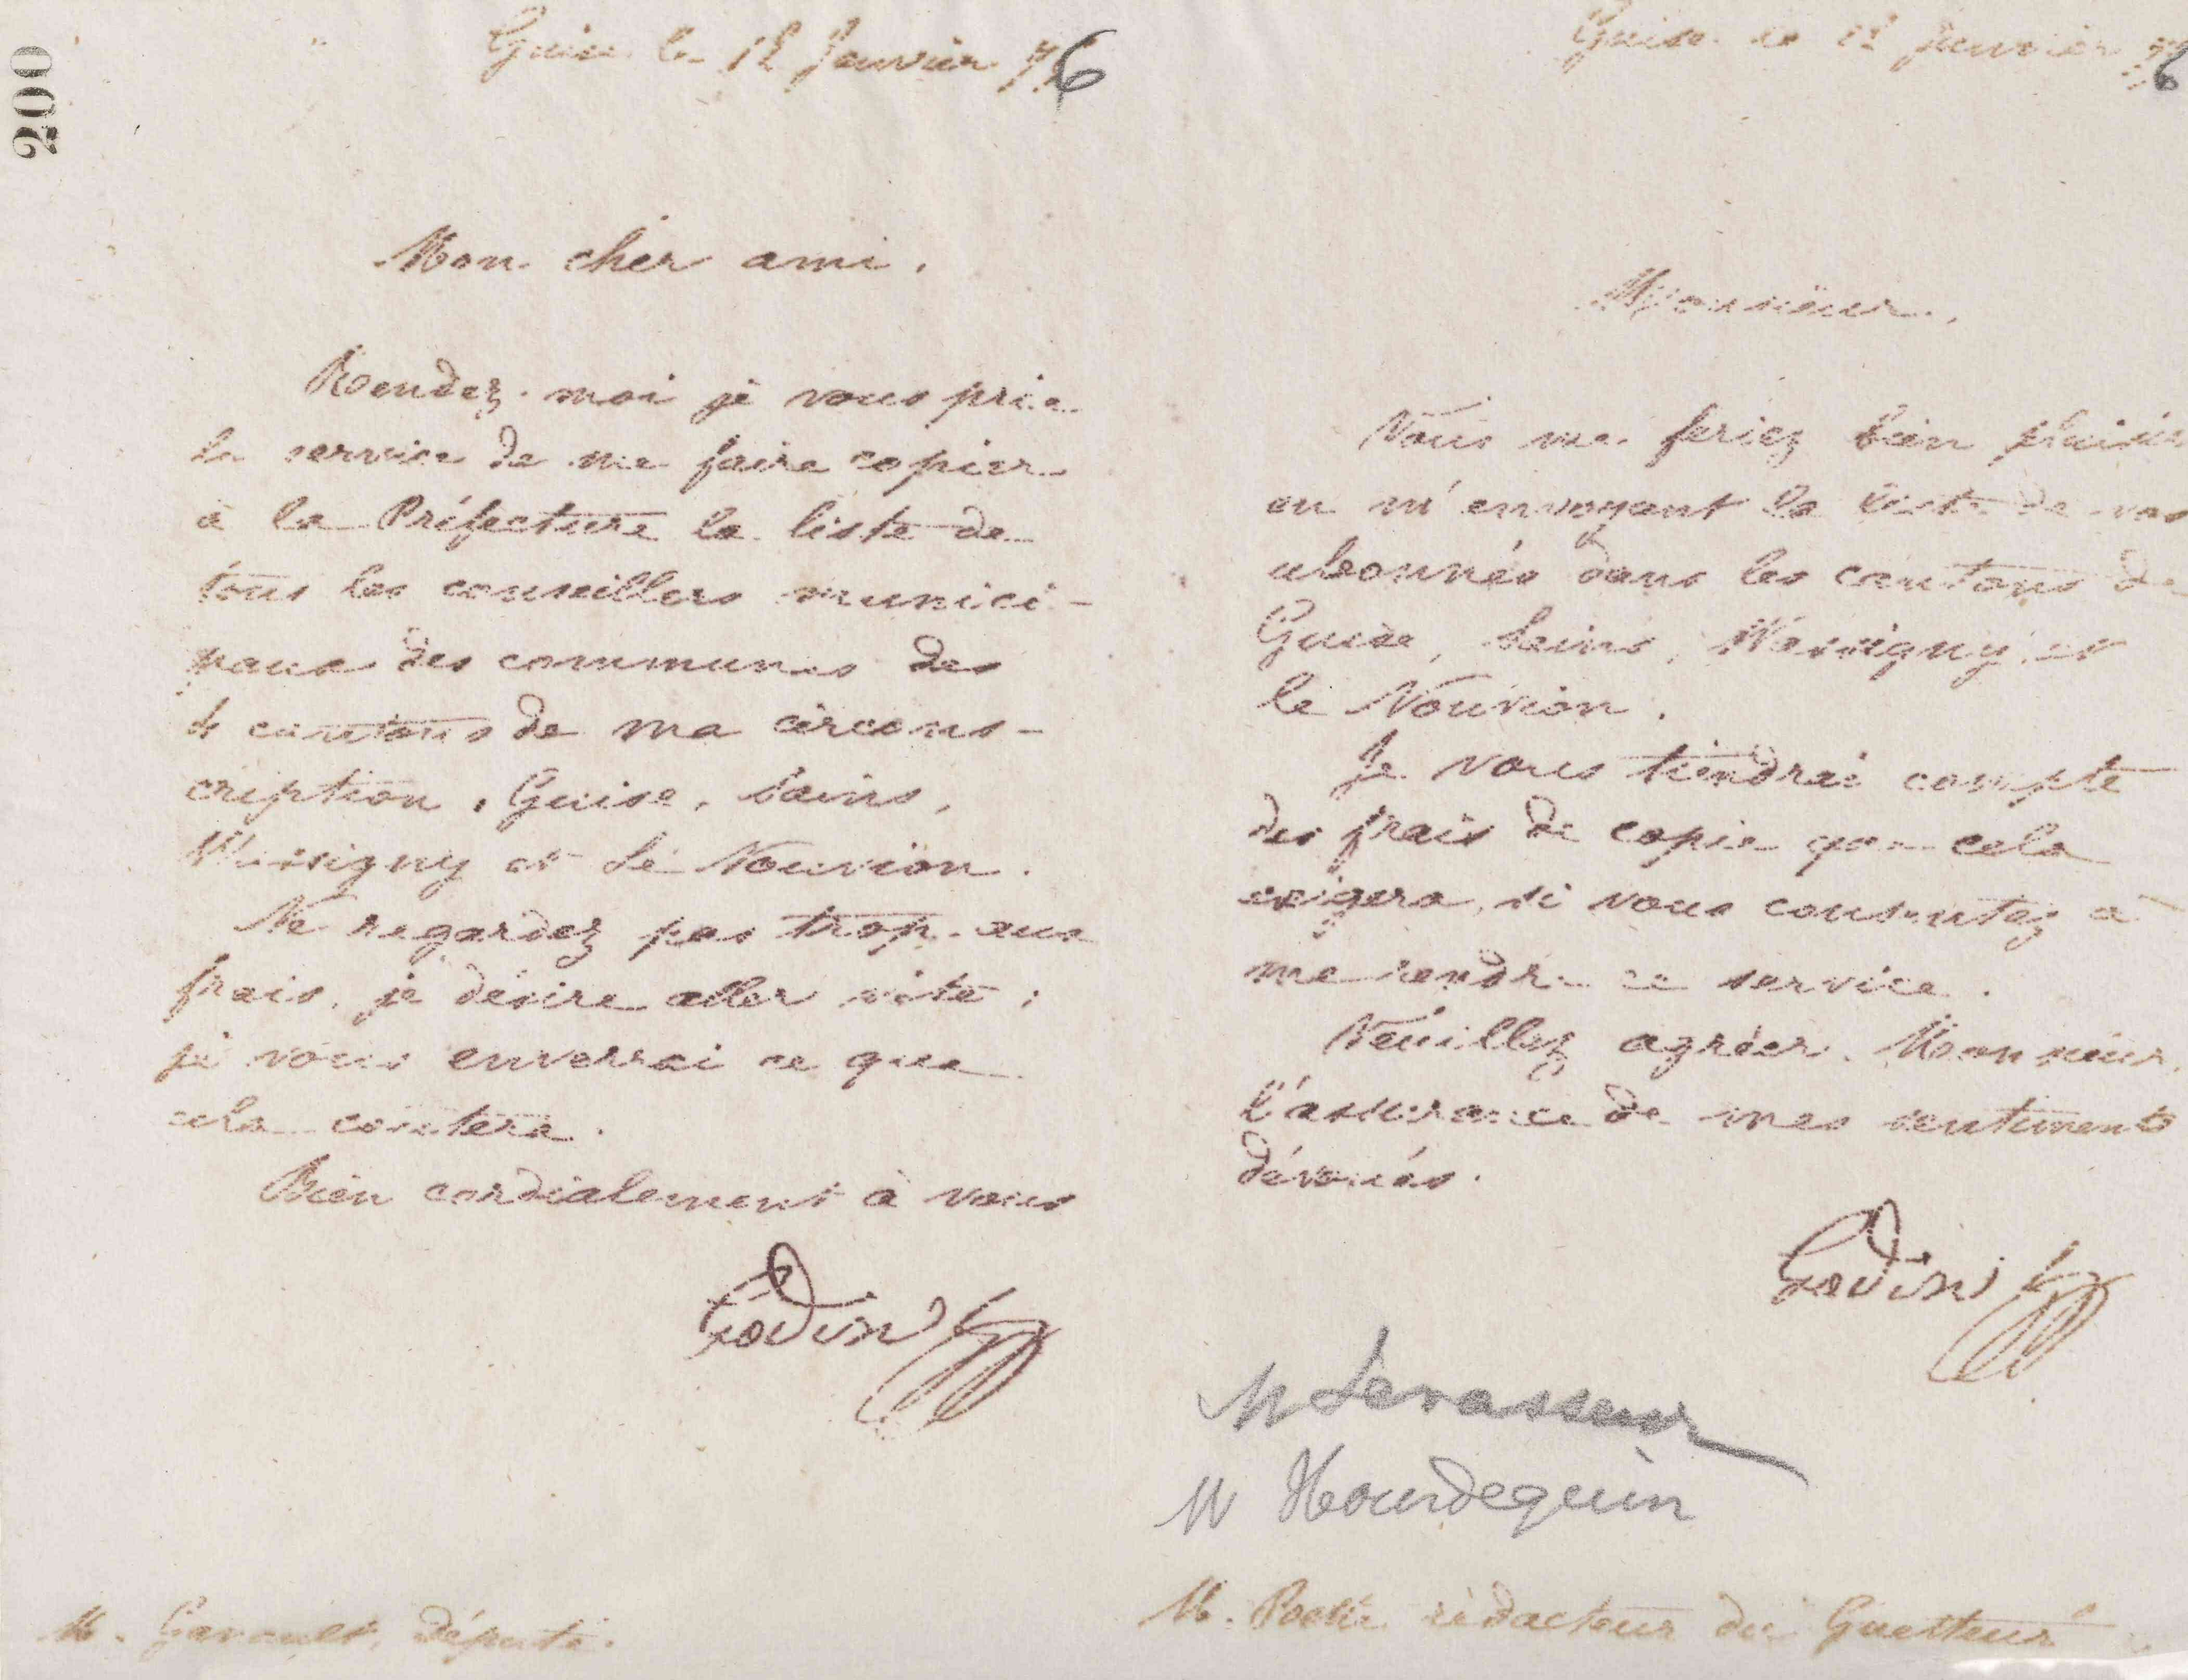 200
Guise le 12 Janvier 76
Mon cher ami,
Rendez-moi je vous prie
le service de me faire copier
à la Préfecture la liste de
tous les conseillers munici-
paux des communes des
4 cantons de ma circons-
cription, Guise, Sains,
Wassigny et Le Nouvion.
Ne regardez pas trop aux
frais, je désire aller vite ;
je vous enverrai ce que
cela coûtera.
Bien cordialement à vous
Godin
M. Garault, député.
Guise le 12 Janvier 76
Monsieur,
Vous me feriez bien plaisir
en m'envoyant la liste de vos
abonnés dans les cantons de
Guise, Sains, Wassigny et
le Nouvion.
Je vous tiendrai compte
des frais de copie que cela
exigera, si vous consentez à
me rendre ce service.
Veuillez agréer, Monsieur,
l'assurance de mes sentiments
dévoués.
Godin
M Levasseur
M Hourdequin
M. rédacteur du Guetteur